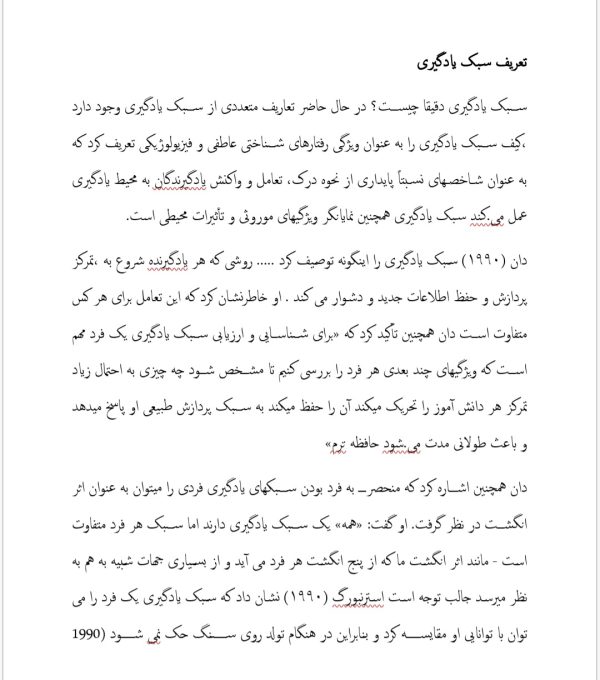 تعریف سبک یادگیری
سبک یادگیری دقیقا چیست؟ در حال حاضر تعاریف متعددی از سبک یادگیری وجود دارد
،کیف سبک یادگیری را به عنوان ویژگی رفتارهای شناختی عاطفی و فیزیولوژیکی تعریف کرد که
به عنوان شاخصهای نسبتاً پایداری از نحوه درک، تعامل و واکنش یادگیرندگان به محیط یادگیری
عمل می‌کند سبک یادگیری همچنین نمایانگر ویژگیهای موروثی و تأثیرات محیطی است.
دان (۱۹۹۰) سبک یادگیری را اینگونه توصیف کرد ..... روشی که هر یادگیرنده شروع به ،تمرکز
پردازش و حفظ اطلاعات جدید و دشوار می کند . او خاطرنشان کرد که این تعامل برای هر کس
متفاوت است دان همچنین تأکید کرد که «برای شناسایی و ارزیابی سبک یادگیری یک فرد مهم
است که ویژگیهای چند بعدی هر فرد را بررسی کنیم تا مشخص شود چه چیزی به احتمال زیاد
تمرکز هر دانش آموز را تحریک میکند آن را حفظ میکند به سبک پردازش طبیعی او پاسخ میدهد
و باعث طولانی مدت می‌شود حافظه ترم»
دان همچنین اشاره کرد که منحصر به فرد بودن سبکهای یادگیری فردی را میتوان به عنوان اثر
انگشت در نظر گرفت. او گفت: «همه» یک سبک یادگیری دارند اما سبک هر فرد متفاوت
است - مانند اثر انگشت ما که از پنج انگشت هر فرد می آید و از بسیاری جهات شبیه به هم به
نظر میرسد جالب توجه است استرنبورگ (۱۹۹۰) نشان داد که سبک یادگیری یک فرد را می
توان با توانایی او مقایسه کرد و بنابراین در هنگام تولد روی سنگ حک نمی شود (1990